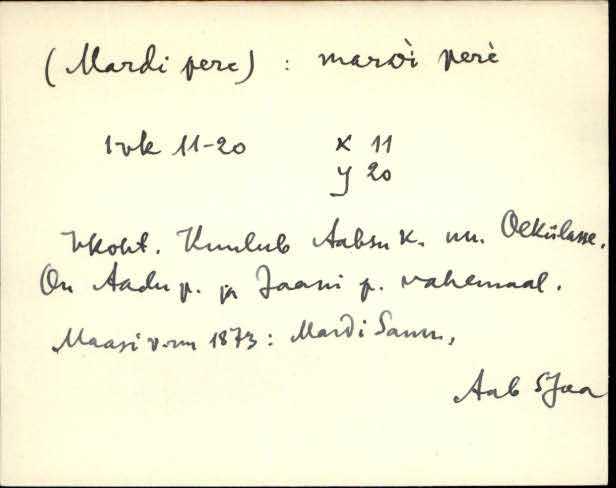 (Mardi pere) : mardì perè
1 vk 11-20 x 11
y 20
Vkoht. Kuulub Aabsu k. nn. Oekülasse.
On Aadu p. ja Jaani p. vahemaal.
Maasi v. nm 1873: Mardi Saun,
Aab SJaa